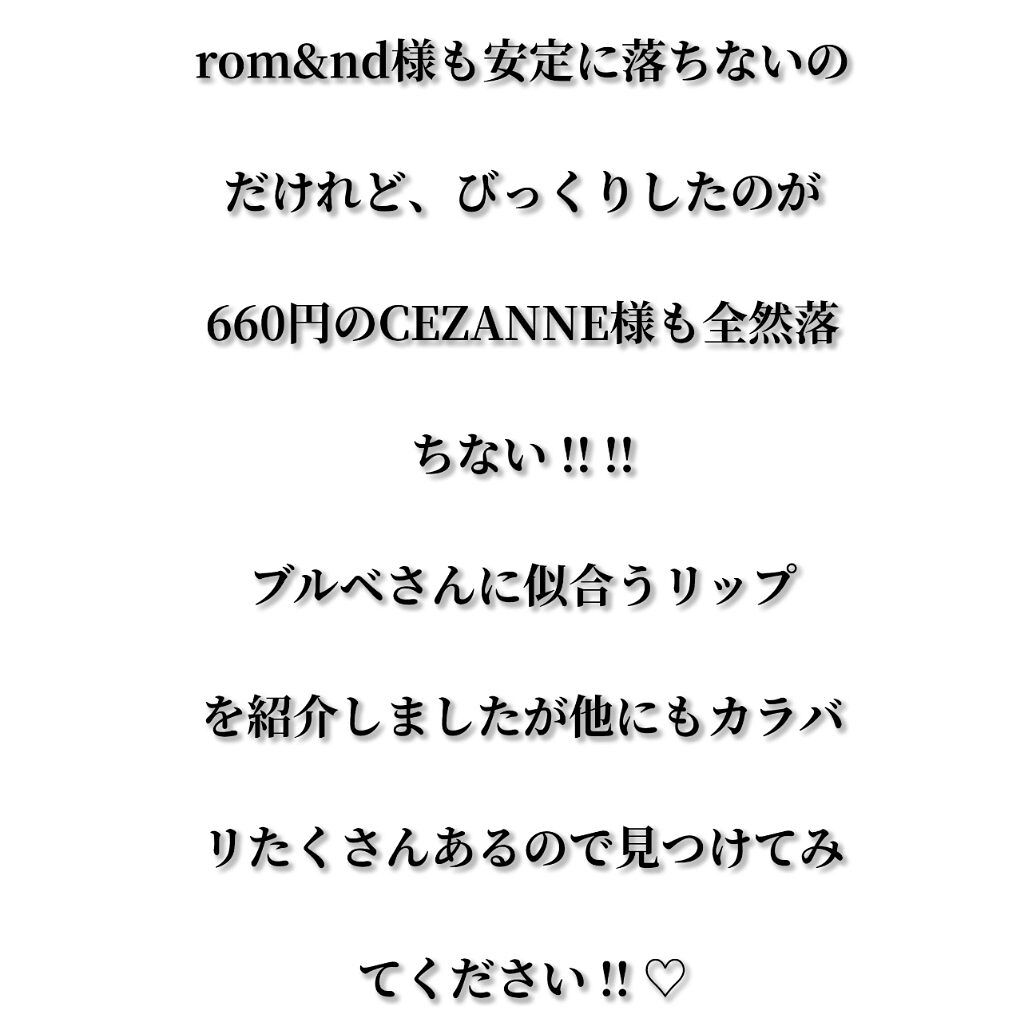 rom&nd様も安定に落ちないの
だけれど、びっくりしたのが
660円のCEZANNE様も全然落
ちない‼︎‼︎
ブルベさんに似合うリップ
を紹介しましたが他にもカラバ
リたくさんあるので見つけてみ
てください‼︎♡